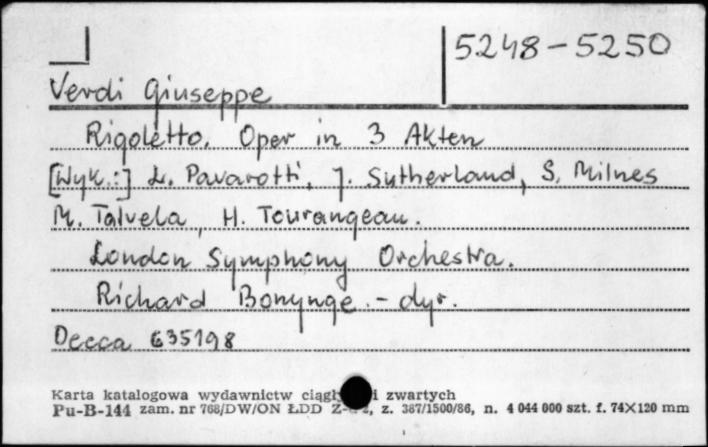 5248-5250
Verdi Giuseppe
Rigoletto. Oper in 3 Akten
[Wyk.:] L. Pavarotti, J. Sutherland, S. Milnes
M. Talvela, H. Tourangeau.
London Symphony Orchestra.
Richard Bonynge. - dyr.
Decca 635198
Karta katalogowa wydawnictw i zwartych
Pu-B-144 zam. nr 768/DW/ON ŁDD z. 387/1500/86, n. 4 044 000 szt. f. 74X120 mm